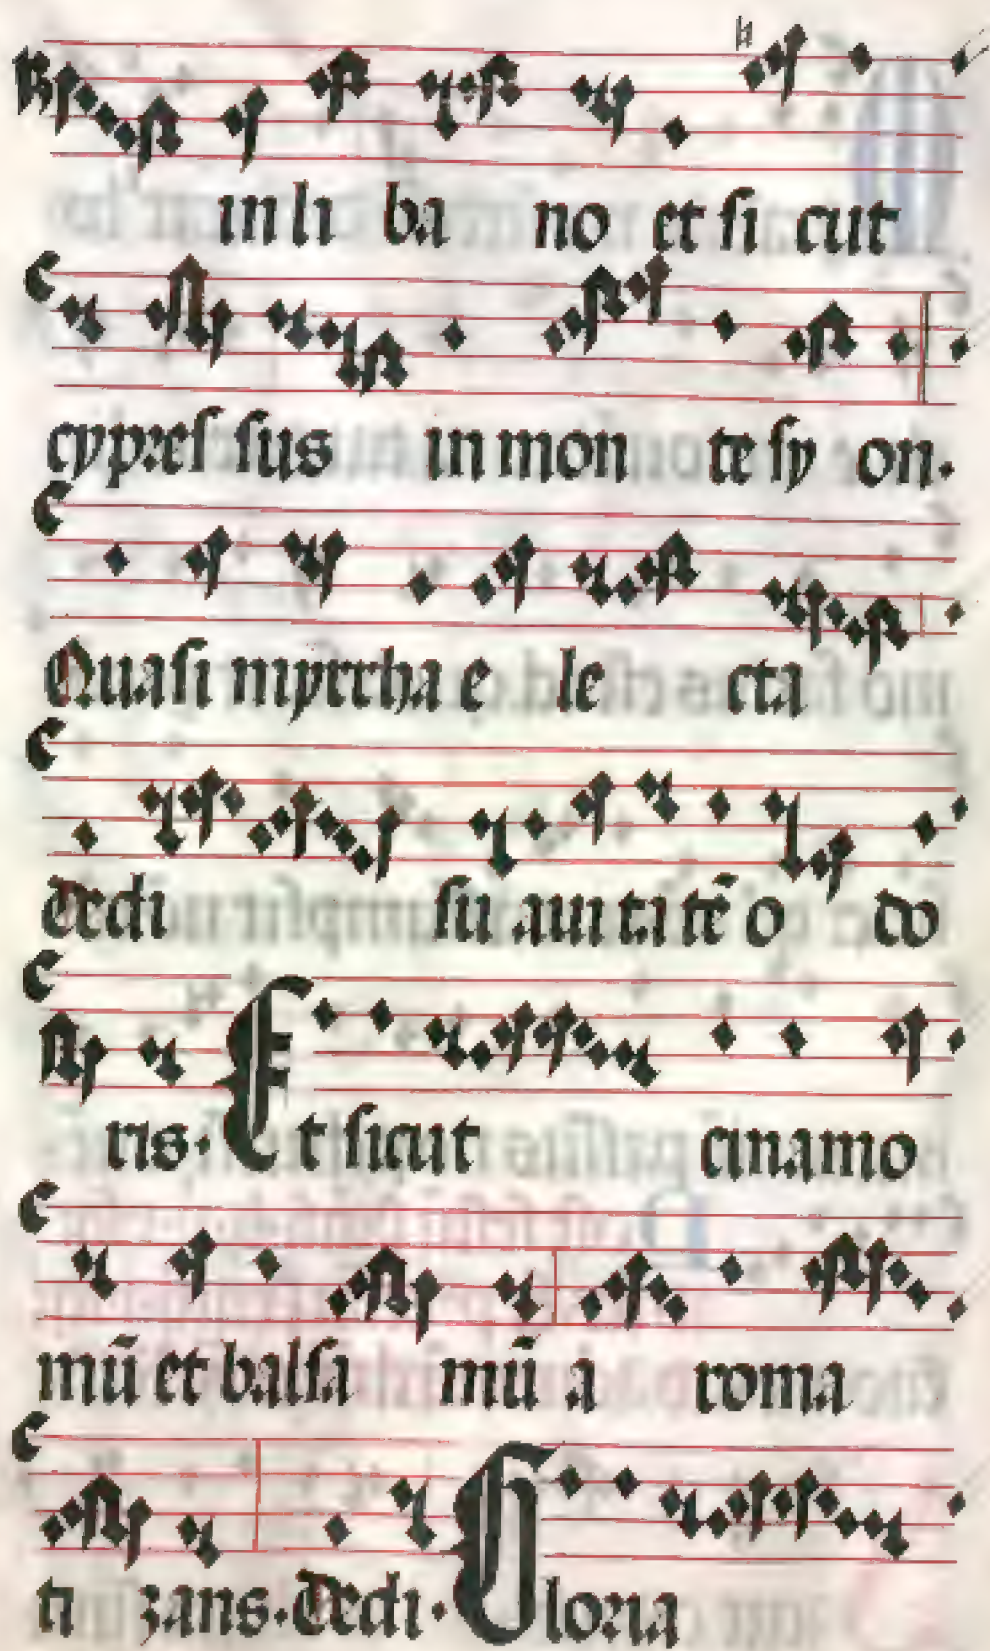 in li ba no et ſi cut
cypreſ ſus in mon te ſy on.
Quaſi myrrha e le cta
dedi ſu aui ta tē o do
ris. Et ſicut cinamo
mū et balſa mū a roma
ti zans. Dedi. Gloria